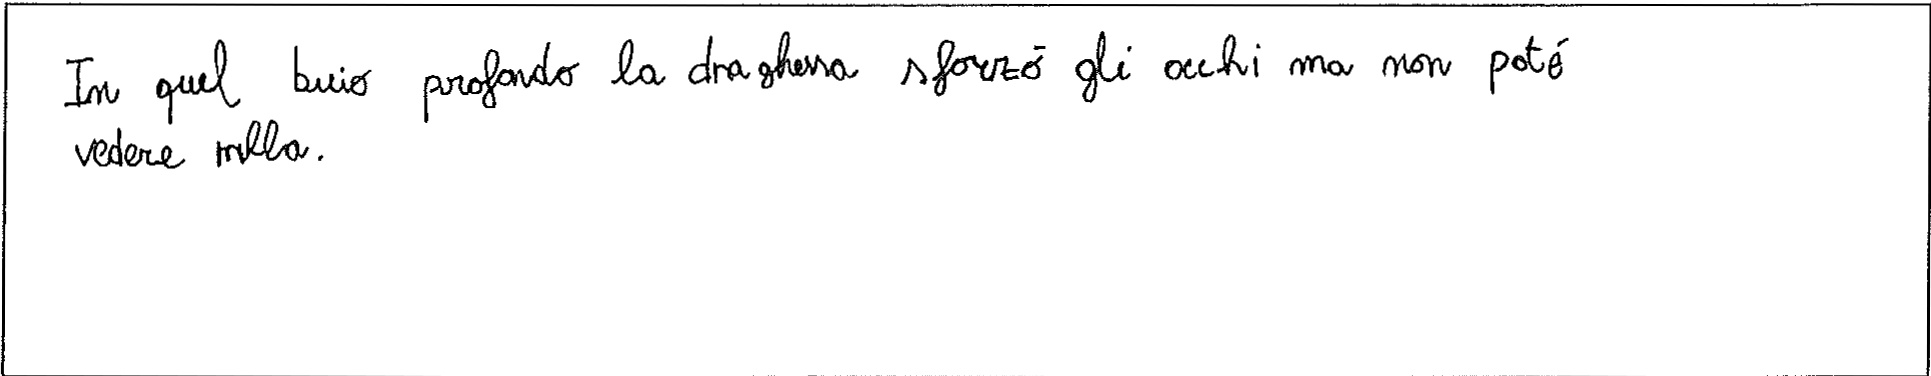 In quel buio profondo la draghessa sforzó gli occhi ma non poté
vedere nulla.